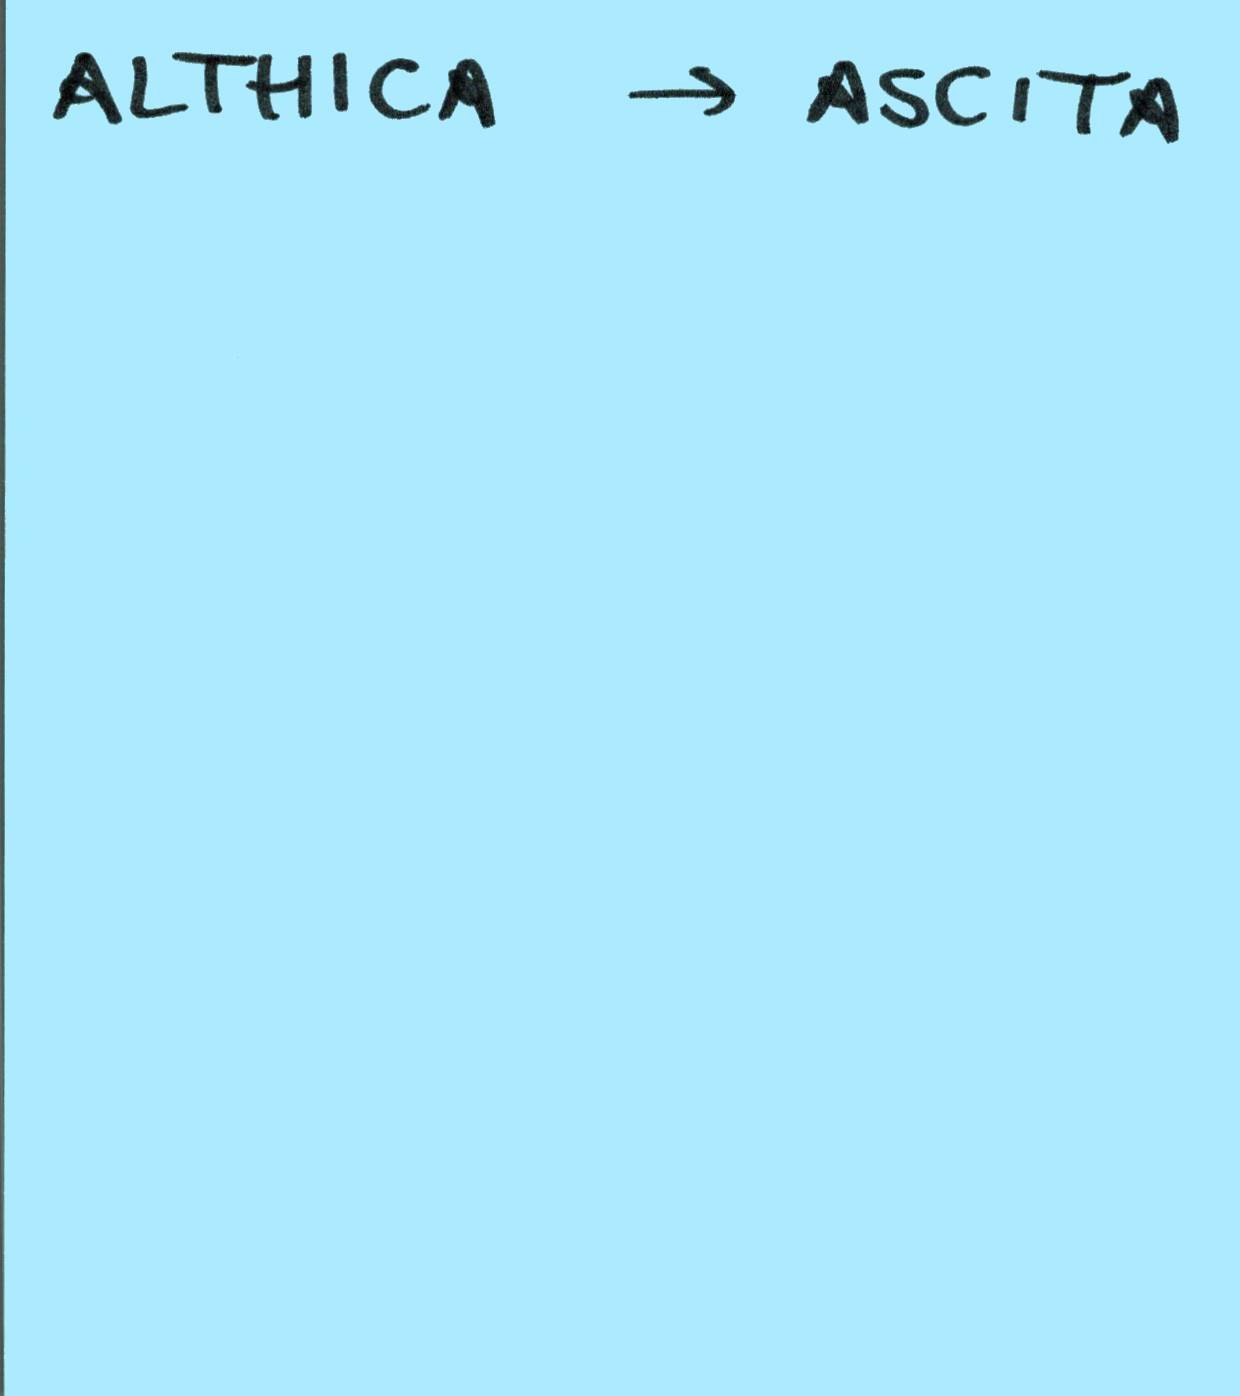 ALTHICA → ASCITA